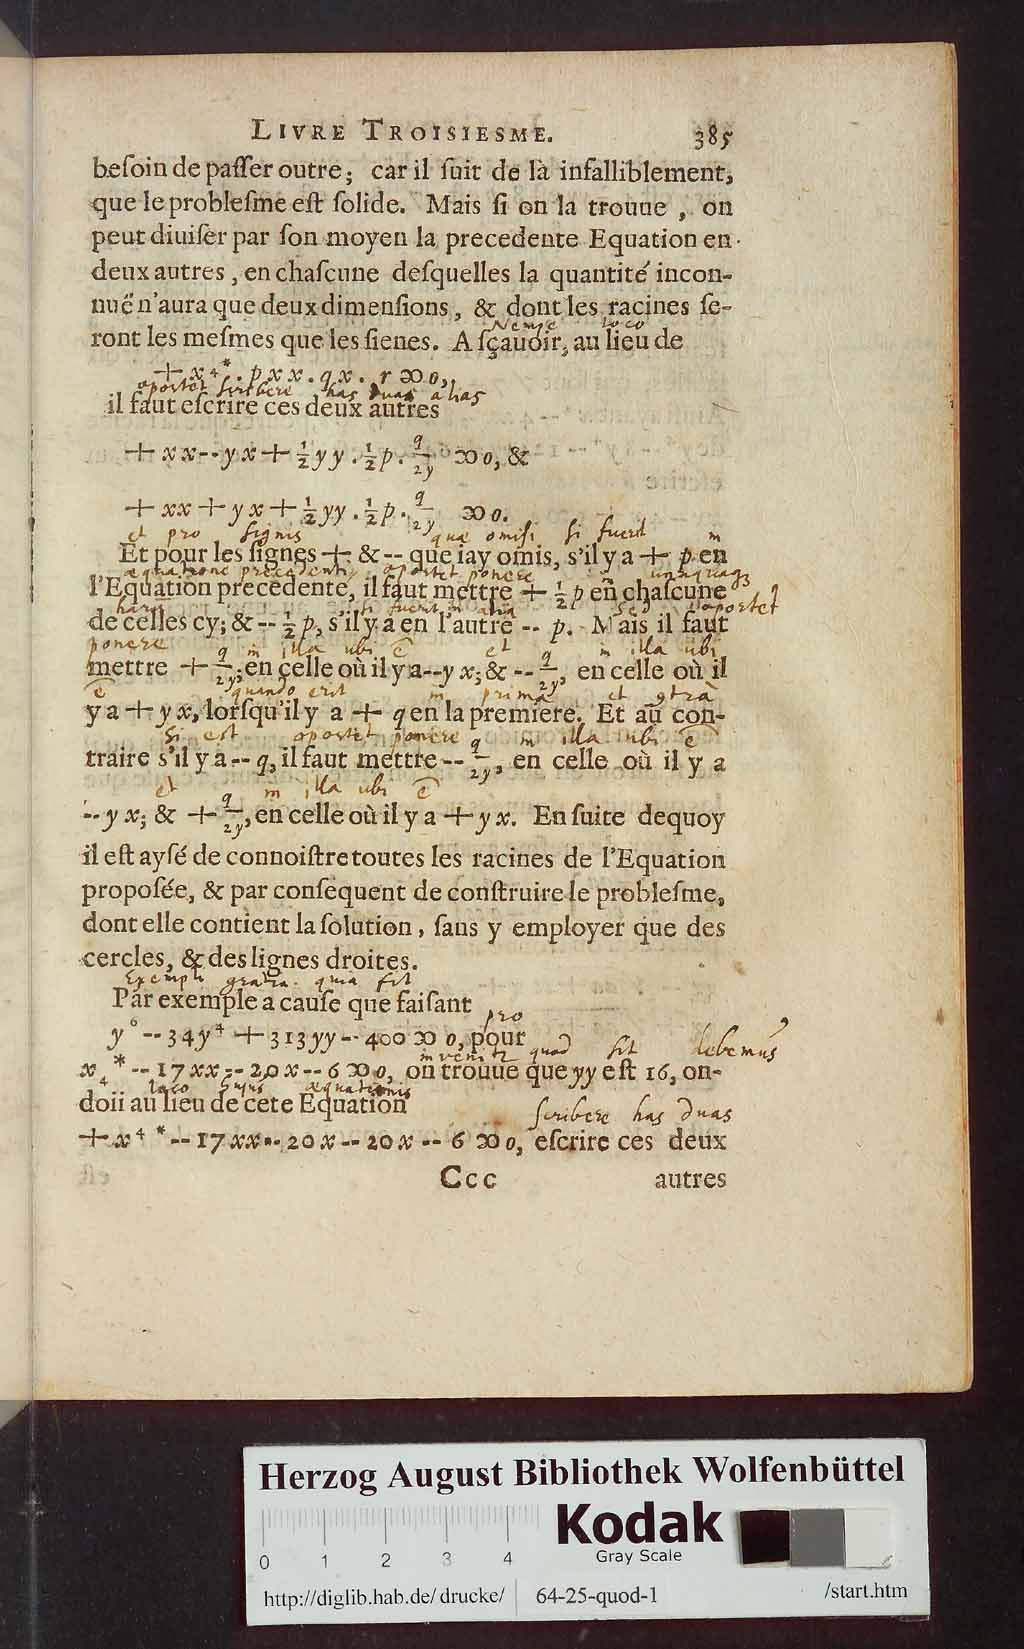 LIVRE TROISIESME. 385
beſoin de paſſer outre; car il ſuit de là infalliblement,
que le probleſme eſt ſolide. Mais ſi on la trouue, on
peut diuiſer par ſon moyen la precedente Equation en
deux autres, en chaſcune deſquelles la quantité incon-
nuë n'aura que deux dimenſions, & dont les racines ſe-
Nempe loco
ront les meſmes que les ſienes. A ſçauoir, au lieu de
+ x⁴*. p xx. q x. r ꝏ 0,
oportet scribere has duas alias
il faut eſcrire ces deux autres
+ xx -- yx + ½ yy. ½ p. q/2y ꝏ 0, &
+ xx + yx + ½ yy. ½ p. q/2y ꝏ 0.
et pro signis quae omisi si fuerit in
Et pour les ſignes + & -- que iay omis, s'il y a + p en
aequatione precedenti oportet ponere in unaquaq
l'Equation precedente, il faut mettre + ½ p en chaſcune
harum si fuerit in alia sed oportet
de celles cy; & -- ½ p, s'il y a en l'autre -- p. Mais il faut
ponere in illa ubi ē et in illa ubi
mettre + q/2y, en celle où il y a -- y x; & -- q/2y, en celle où il
ē quando erit in prima et 9tra
y a + y x, lorſqu'il y a + q en la premiere. Et au con-
si est oportet ponere in illa ubi ē
traire s'il y a -- q, il faut mettre -- q/2y, en celle où il y a
et in illa ubi ē
-- y x; & + q/2y, en celle où il y a + y x. En ſuite dequoy
il eſt ayſé de connoiſtre toutes les racines de l'Equation
propoſée, & par conſequent de conſtruire le probleſme,
dont elle contient la ſolution, ſans y employer que des
cercles, & des lignes droites.
Exempli gratia quia fit
Par exemple a cauſe que faiſant
pro
y⁶ -- 34 y⁴ + 313 yy -- 400 ꝏ 0, pour
invenitr quod sit debemus
x⁴* -- 17 xx -- 20 x -- 6 ꝏ 0, on trouue que yy eſt 16, on
loco hujus aequationis
doit au lieu de cete Equation
scribere has duas
+ x⁴* -- 17 xx -- 20 x -- 20 x -- 6 ꝏ 0, eſcrire ces deux
Ccc autres
Herzog August Bibliothek Wolfenbüttel
Kodak
Gray Scale
0 1 2 3 4
http://diglib.hab.de/drucke/ 64-25-quod-1 /start.htm